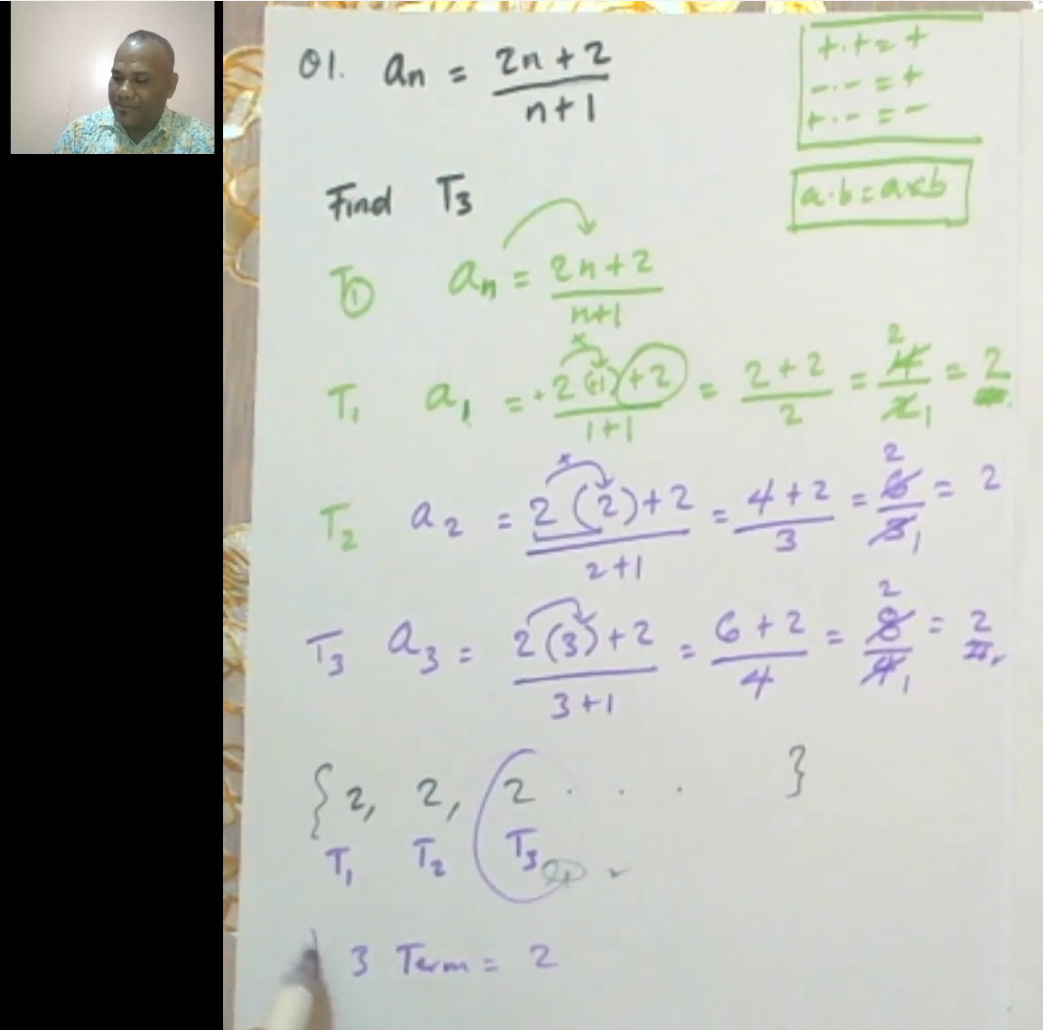 Q1. an = 2n + 2 / n + 1
+ · + = +
- · - = +
+ · - = -
a · b = a x b
Find T3
T1 an = 2n + 2 / n+1
T1 a1 = +2(+1)+2 / 1+1 = 2+2 / 2 = 4 / 2 = 2
T2 a2 = 2(2)+2 / 2+1 = 4+2 / 3 = 6 / 3 = 2
T3 a3 = 2(3)+2 / 3+1 = 6+2 / 4 = 8 / 4 = 2
{ 2, 2, 2 . . . }
T1 T2 T3
3 Term = 2